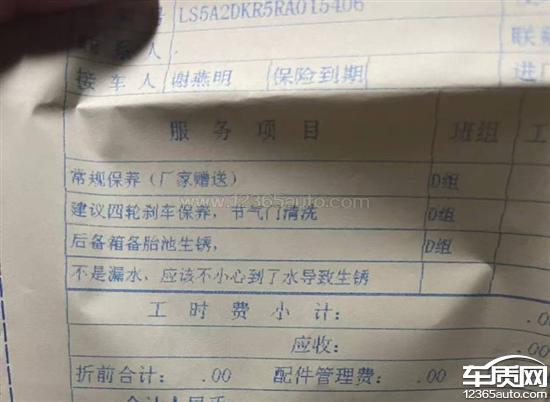 号 LS5A2DKR5RA015406
联系人 . 联
接车人 谢燕明 保险到期 进厂
服务项目 班组 工
常规保养(厂家赠送) D组
建议四轮刹车保养,节气门清洗 D组
后备箱备胎池生锈, D组
不是漏水、应该不小心到了水导致生锈
工时费小计: .0
应收:
折前合计: .00 配件管理费: .00
合计人民币
www.12365auto.com
车质网
12365auto.com